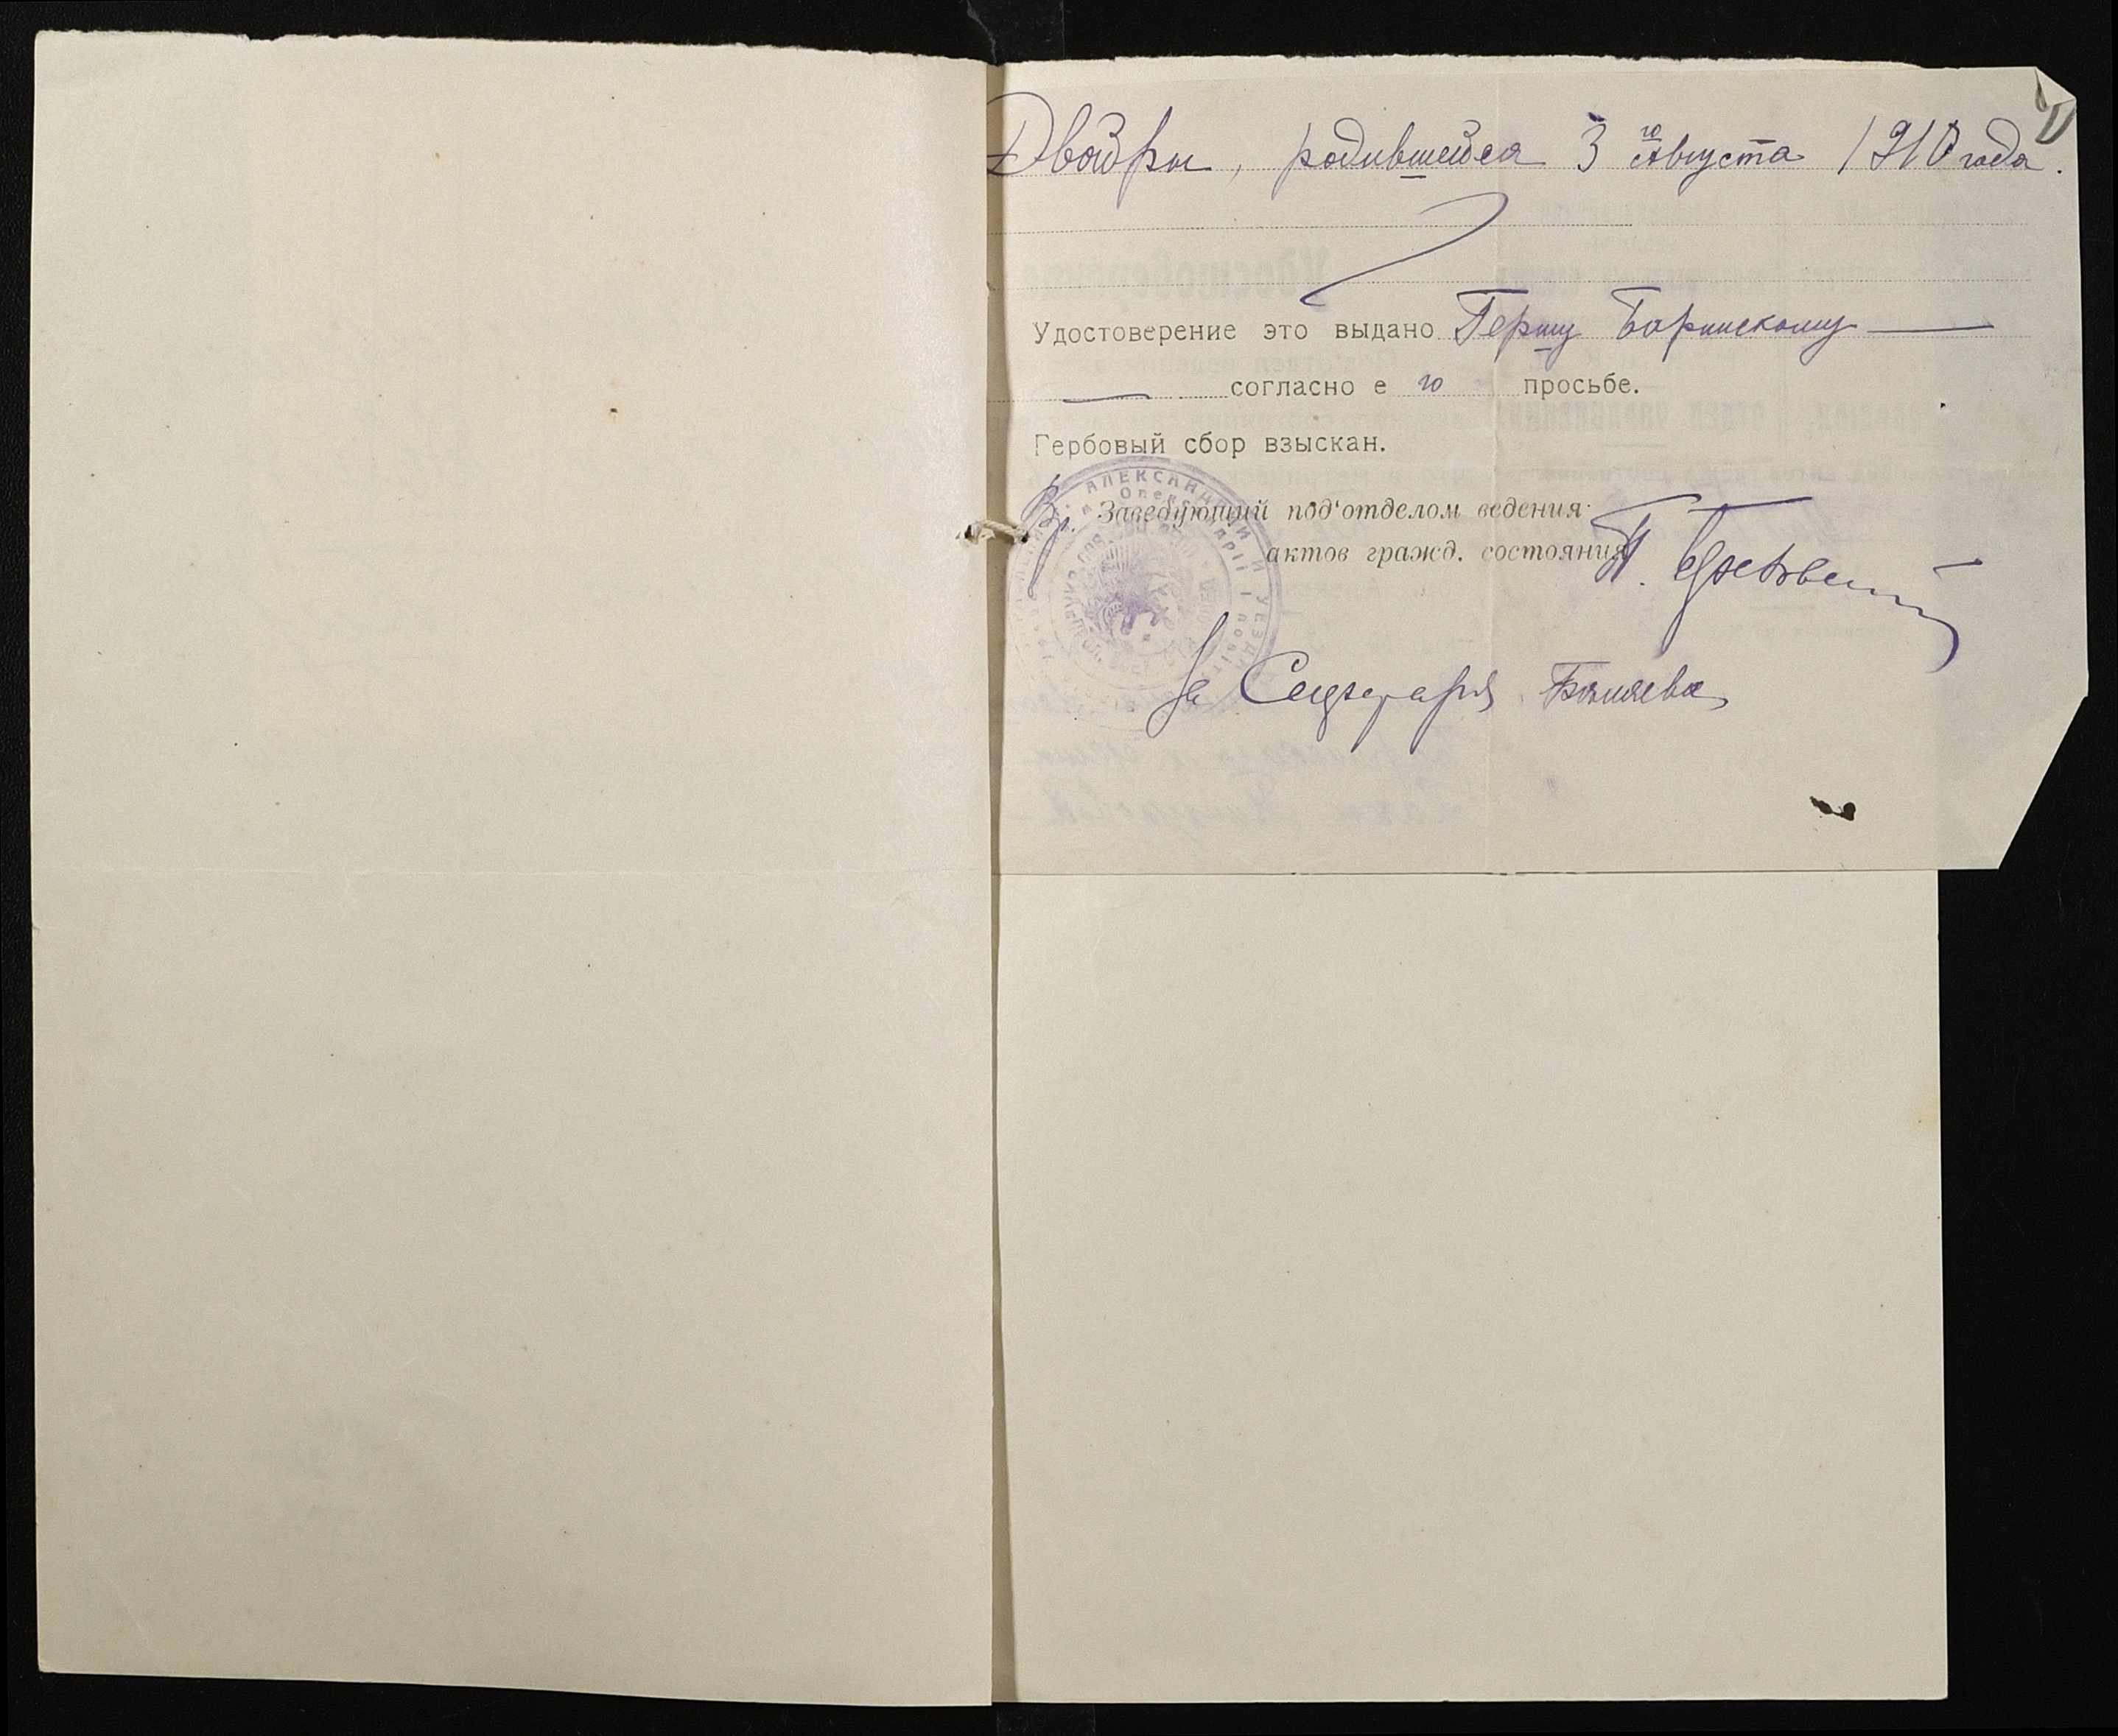 Двойры, родившейся 3го Августа 1910 года.
Удостоверение это выдано Гершу Боринскому
согласно е го просьбе.
Гербовый сбор взыскан.
Вр. Заведующий под'отделом ведения
актов гражд. состояния П.
За Секретаря